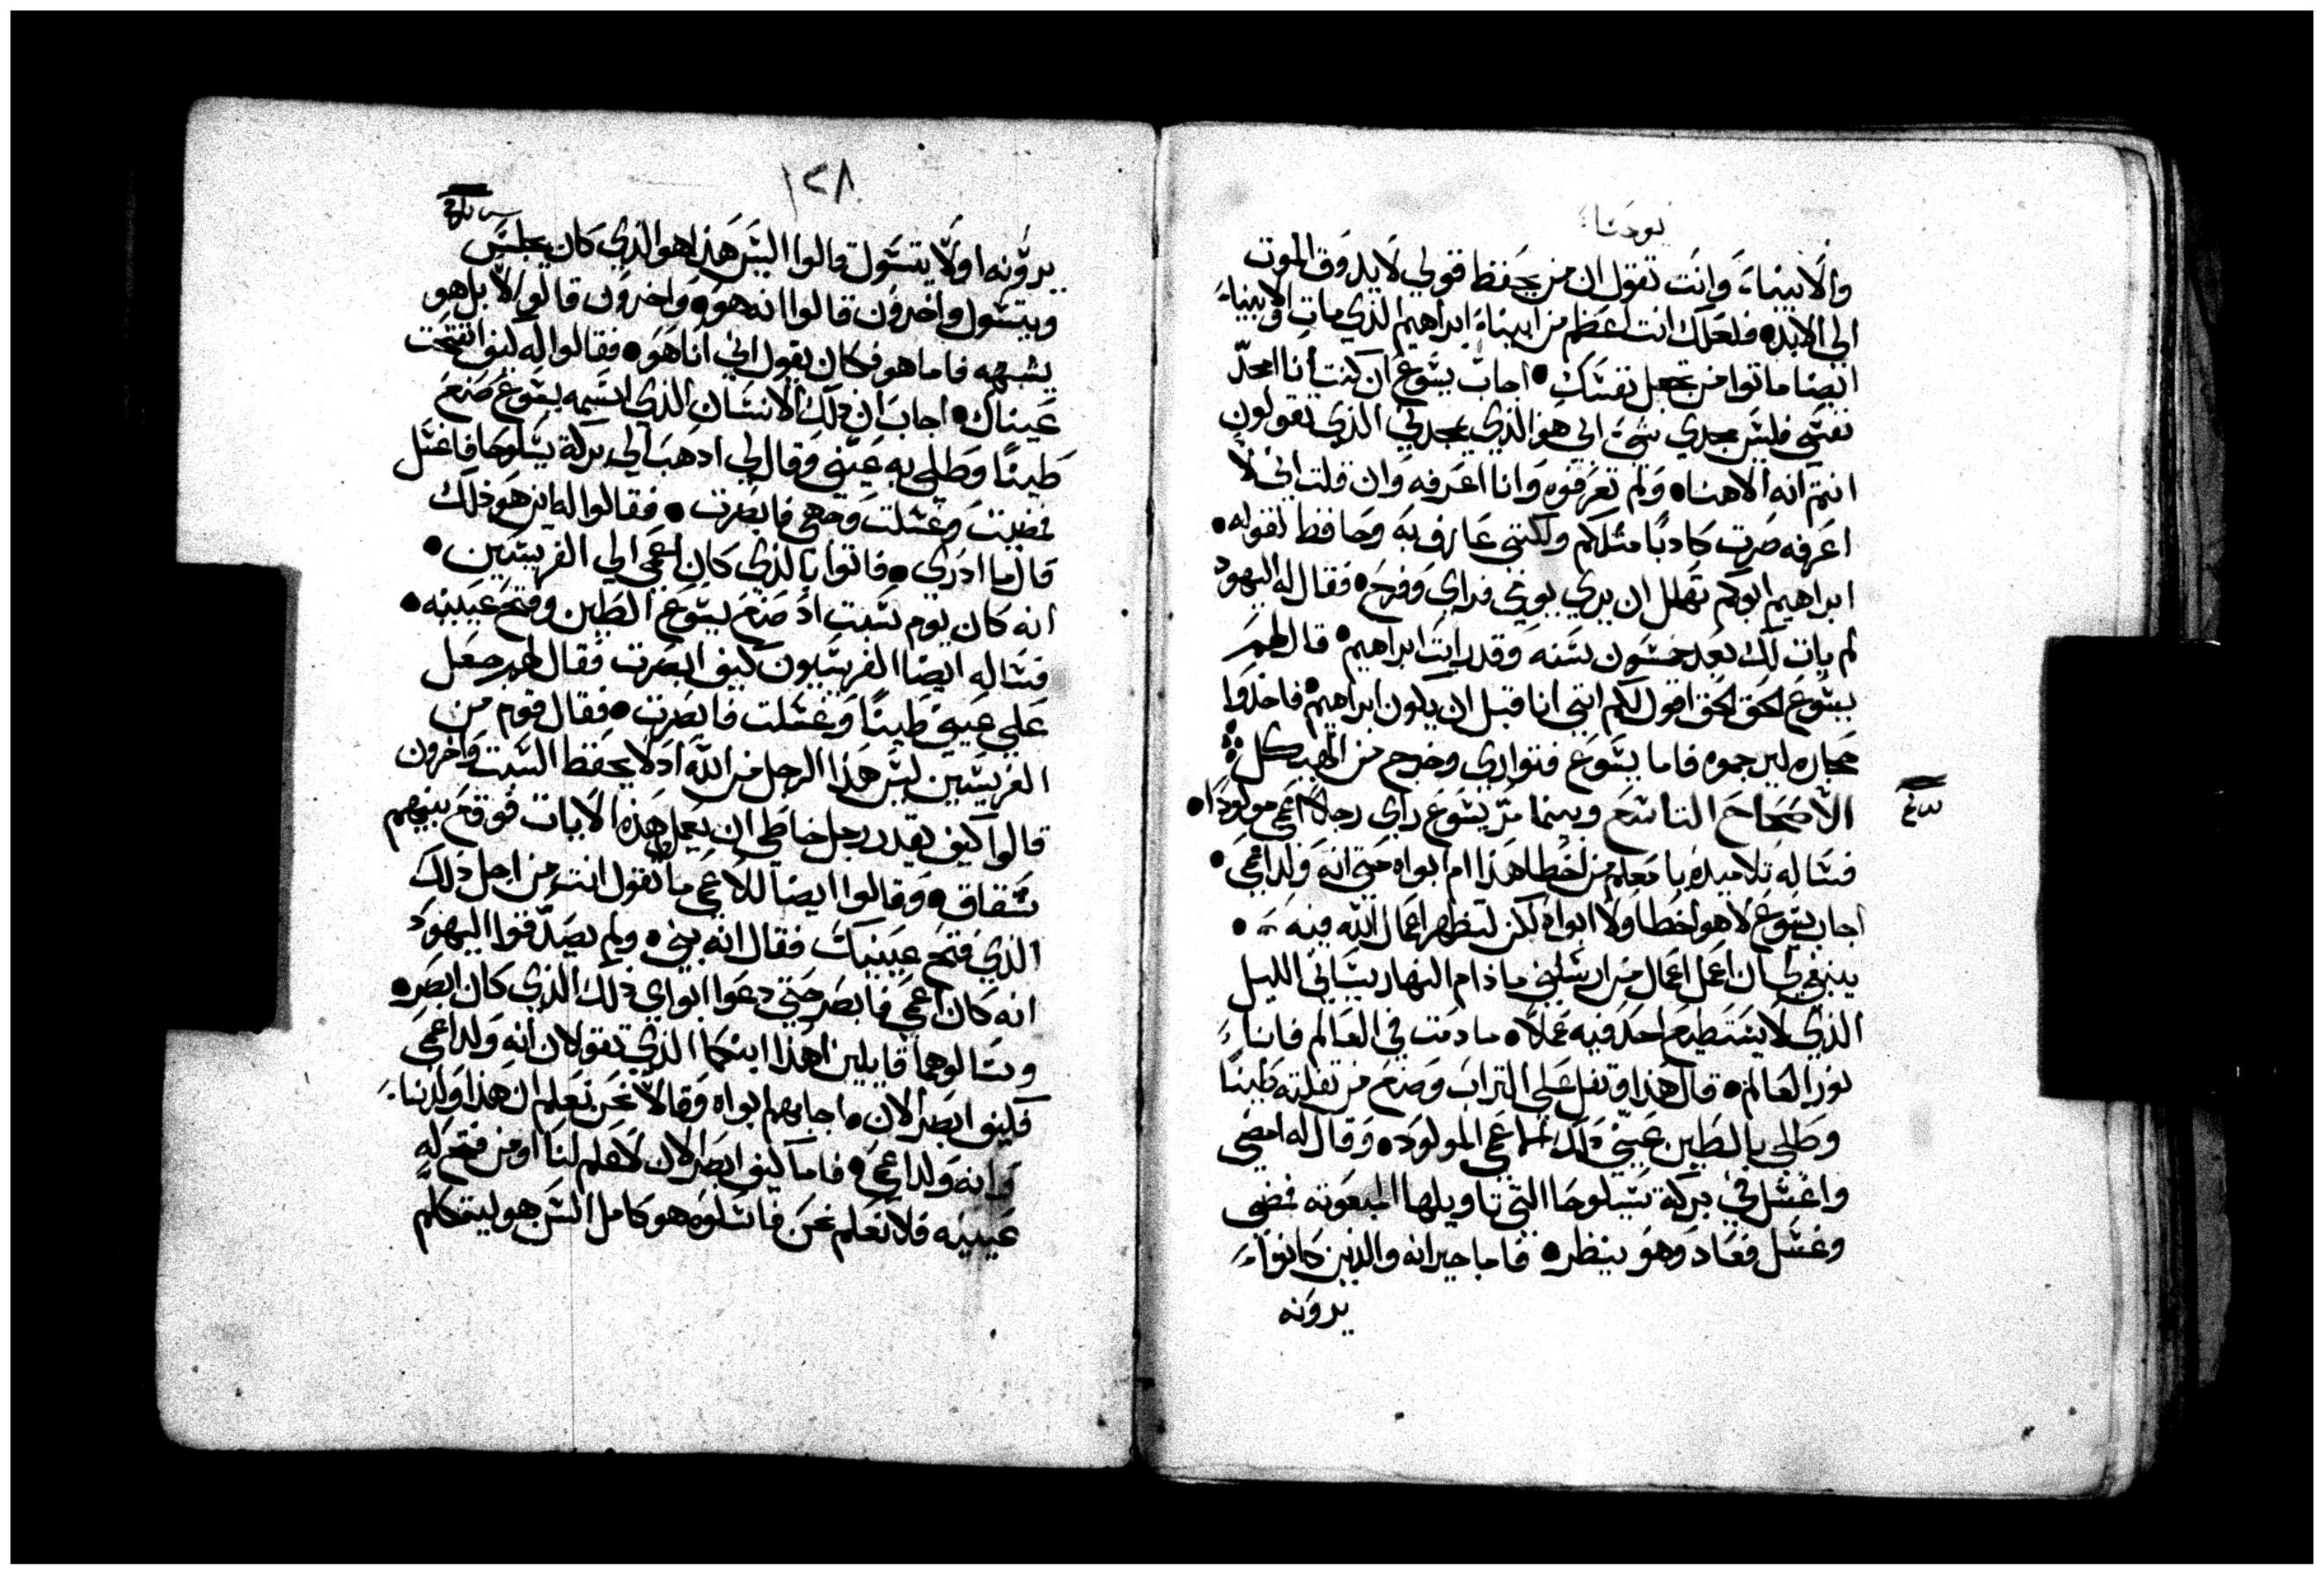 يوحنا
والانبياء، وانت تقول ان من يحفظ قولي لا يدوق الموت
الى الابد، فلعلك انت اعظم من ابينا ابراهيم الذي مات والانبياء
ايضا ماتوا من تجعل نفسك، اجاب يسوع ان كنت انا امجد
نفسي فليس مجدي شي ابي هو الذي يمجدني الذي تقولون
انتم انه الاهنا، ولم تعرفوه وانا اعرفه وان قلت اني لا
اعرفه صرت كادبا مثلكم ولكني عارف به وحافظ لقوله،
ابراهيم ابوكم تهلل ان يري يومي فراي وفرح، فقال له اليهود
لم يات لك بعد خمسون سنه وقد رايت ابراهيم، قال لهم
يسوع الحق الحق اقول لكم انني انا قبل ان يكون ابراهيم، فاخدوا
حجاره ليرجموه فاما يسوع فتواري وخرج من الهيكل
الاصحاح التاسع وبينما مر يسوع راي رجلا اعمي مولودا،
فساله تلاميده يا معلم من اخطا هذا ام ابواه حتي انه ولد اعمي،
اجاب يسوع لا هو اخطا ولا ابواه لكن لتظهر اعمال الله فيه،
ينبغي لي ان اعمل اعمال من ارسلني ما ذام النهار سياتي الليل
الذي لا يستطيع احد فيه عملا، ما دمت في العالم فانا
نور العالم، قال هذا وتفل علي التراب وصنع من تفلته طينا
وطلي بالطين عيني دلك الاعمي المولود، وقال له امضي
واغسل في بركة سيلوحا التي تاويلها المبعوثه فمضي
وغسل فعاد وهو ينظر، فاما جيرانه والذين كانوا
يرونه
١٢٨
يرونه اولا يتسول قالوا اليس هذا هو الذي كان يجلس
ويتسول واخرون قالوا انه هو، واخرون قالوا لا بل هو
يشبهه فاما هو فكان يقول اني انا هو، فقالوا له كيف انفتحت
عيناك، اجاب ان دلك الانسان الذي اسمه يسوع صنع
طينا وطلي به عيني وقال لي ادهب الي بركة سيلوحا فاغسل
فمضيت وغسلت وجهي فابصرت، فقالوا له اين هو ذلك
قال ما ادري، فاتوا بالذي كان اعمي الي الفريسيين،
انه كان يوم سبت اد صنع يسوع الطين وفتح عينيه،
فساله ايضا الفريسيون كيف ابصرت فقال لهم جعل
علي عيني طينا وغسلت فابصرت، فقال قوم من
الفريسيين ليس هذا الرجل من الله اد لا يحفظ السبت واخرون
قالوا كيف يقدر رجل خاطي ان يعمل هذه الايات فوقع بينهم
شقاق، وقالوا ايضا للاعمي ما تقول انت من اجل ذلك
الذي فتح عينيك فقال انه نبي، ولم يصدقوا اليهود
انه كان اعمي فابصر حتي دعوا ابوي دلك الذي كان ابصر،
وسالوهما قايلين اهذا ابنكما الذي تقولان انه ولد اعمي
فكيف ابصر الان، اجابهم ابواه وقالا نحن نعلم ان هذا ولدنا
وانه ولد اعمي، فاما كيف ابصر الان لا علم لنا او من فتح له
عينيه فلا نعلم نحن فاسلوه هو كامل السن هو ليتكلم